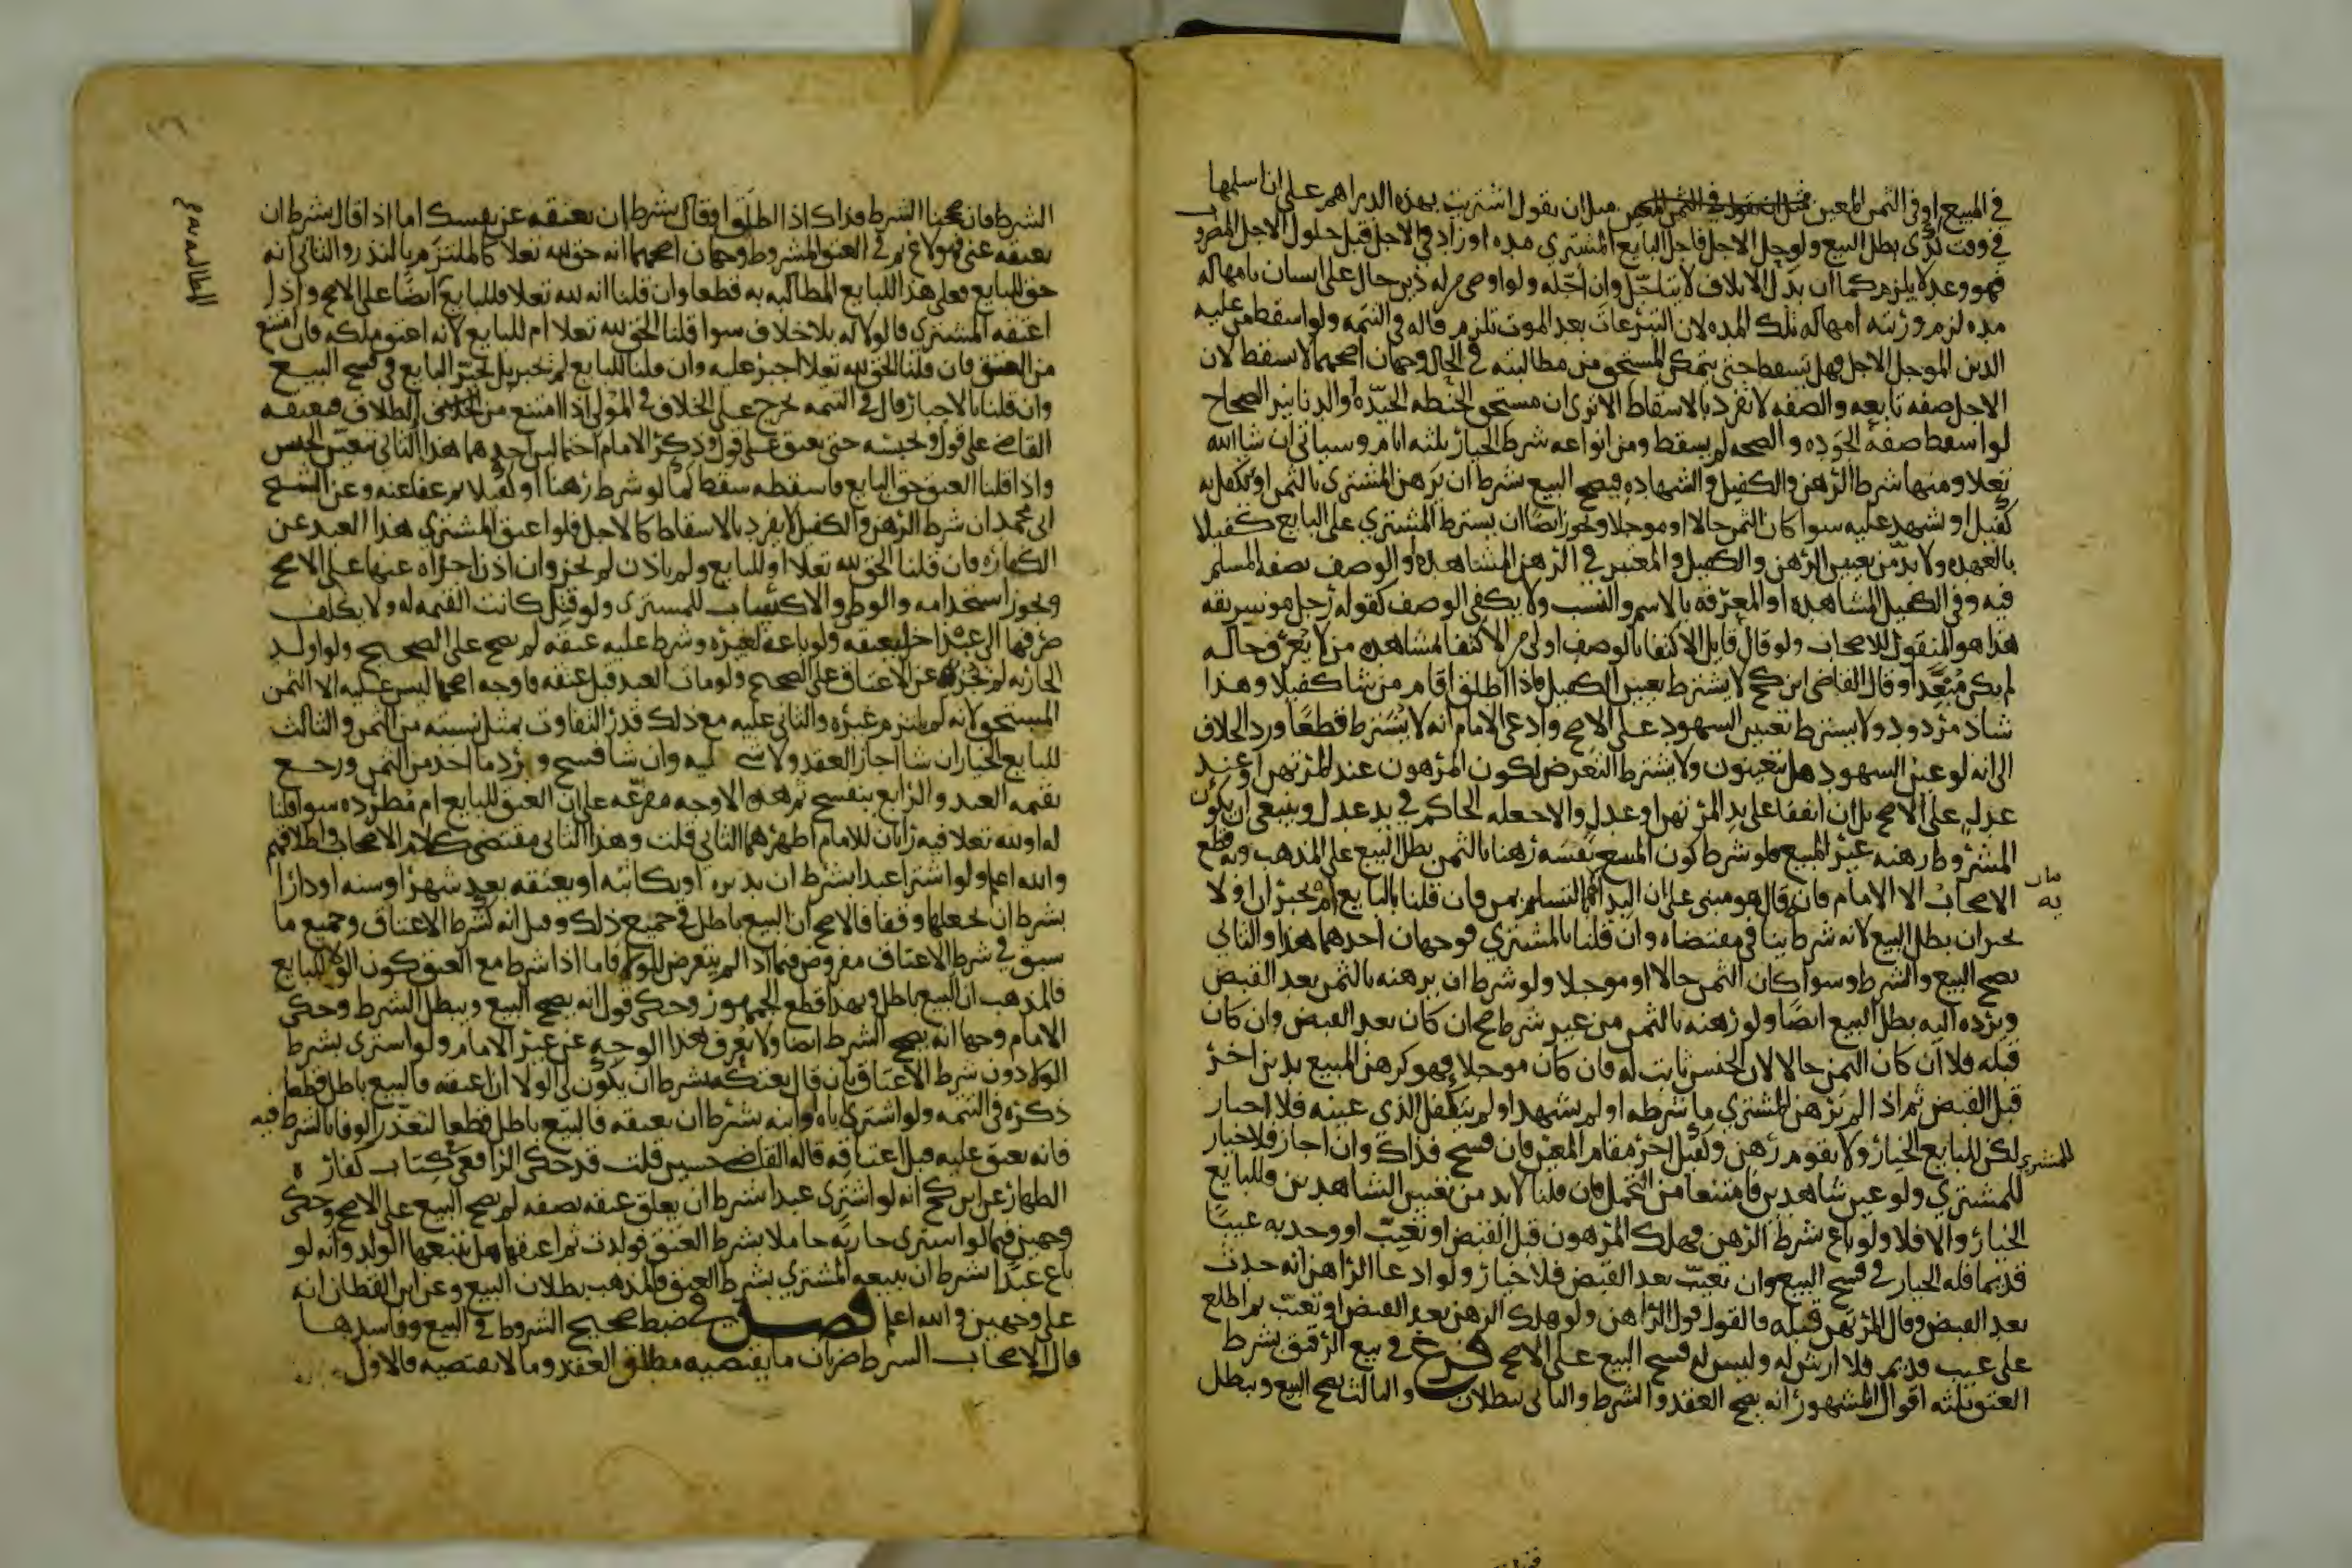 في المبيع او في الثمن المعين مثل ان يقول اشتريت بهذه الدراهم على ان اسلمها
في وقت كذى بطل البيع ولو حل الاجل فاجل البايع المشتري مده او زاد في الاجل قبل حلول الاجل المضروب
فهو وعد لا يلزم كما ان بدل الاتلاف لا يتاجل وان اجله ولو اوصى من له دين حال على انسان بامهاله
مده لزم ورثته امهاله تلك المده لان التبرعات بعد الموت تلزم قاله في التتمه ولو اسقط من عليه
الدين الموجل الاجل فهل يسقط حتى يتمكن المستحق من مطالبته في الحال وجهان اصحهما لا يسقط لان
الاجل صفه تابعه والصفه لا تفرد بالاسقاط الا ترى ان مستحق الحنطه الجيده او الدنانير الصحاح
لو اسقط صفة الجوده والصحه لم يسقط ومن انواعه شرط الخيار ثلثه ايام وسياتي ان شا الله
تعلا ومنها شرط الرهن والكفيل والشهاده فيصح البيع بشرط ان يرهن المشتري بالثمن او يتكفل به
كفيل او يشهد عليه سوا كان الثمن حالا او موجلا ويجوز ايضا ان يشترط المشتري على البايع كفيلا
بالعهده ولا بد من تعيين الرهن والكفيل والمعتبر في الرهن المشاهده او الوصف بصفه المسلم
فيه وفي الكفيل المشاهده او المعرفه بالاسم والنسب ولا يكفي الوصف كقوله رجل موسر ثقه
هذا هو المنقول للاصحاب ولو قال قايل الاكتفا بالوصف اولى من الاكتفا بمشاهده من لا يعرف حاله
لم يكن مبعدا وقال القاضي ابن كج لا يشترط تعيين الكفيل فاذا اطلق اقام من شا كفيلا وهذا
شاذ مردود ولا يشترط تعيين الشهود على الاصح وادعى الامام انه لا يشترط قطعا ورد الخلاف
الى انه لو عين الشهود هل يتعينون ولا يشترط التعرض لكون المرهون عند المرتهن او عند
عدل على الاصح بل ان اتفقا على يد المرتهن او عدل والا جعله الحاكم في يد عدل وينبغي ان يكون
المشروط رهنه غير المبيع فلو شرط كون المبيع نفسه رهنا بالثمن بطل البيع على المذهب وبه قطع
الاصحاب الا الامام فانه قال هو مبني على ان البداه بالتسليم بمن فان قلنا بالبايع او يجبران او لا
يجبران بطل البيع لانه شرط ينافي مقتضاه وان قلنا بالمشتري فوجهان احدهما هذا والثاني
يصح البيع والشرط وسوا كان الثمن حالا او موجلا ولو شرط ان يرهنه بالثمن بعد القبض
ويرده اليه بطل البيع ايضا ولو رهنه بالثمن من غير شرط صح ان كان بعد القبض وان كان
قبله فلا ان كان الثمن حالا لان الحبس ثابت له فان كان موجلا فهو كرهن المبيع بدين اخر
قبل القبض ثم اذا لم يرهن المشتري ما شرطه او لم يشهد او لم يتكفل الذي عينه فلا اجبار
لكن للبايع الخيار ولا يقوم رهن وكفيل اخر مقام المعين فان فسخ فذاك وان اجاز فلا خيار
للمشتري ولو عين شاهدين فامتنعا من التحمل فان قلنا لا بد من تعيين الشاهدين فللبايع
الخيار والا فلا ولو باع بشرط الرهن فهلك المرهون قبل القبض او تعيب او وجد به عيبا
قديما فله الخيار في فسخ البيع وان تعيب بعد القبض فلا خيار ولو ادعا الراهن انه حدث
بعد القبض وقال المرتهن قبله فالقول قول الراهن ولو هلك الرهن بعد القبض او تعيب ثم اطلع
على عيب قديم فلا ارش له وليس له فسخ البيع على الاصح فرع في بيع الرقيق بشرط
العتق ثلثه اقوال المشهور انه يصح العقد والشرط والثاني يبطلان والثالث يصح البيع ويبطل
للمشتري
الشرط فان صححنا الشرط فذاك اذا اطلق او قال بشرط ان يعتقه عن نفسك اما اذا قال بشرط ان
يعتقه عني فهو لاغ ثم في العتق المشروط وجهان اصحهما انه حق لله تعلا كالملتزم بالنذر والثاني انه
حق للبايع فعلى هذا للبايع المطالبه به قطعا وان قلنا انه لله تعلا فللبايع ايضا على الاصح واذا
اعتقه المشتري فالولا له بلا خلاف سوا قلنا الحق لله تعلا ام للبايع لانه اعتق ملكه فان امتنع
من العتق فان قلنا الحق لله تعلا اجبر عليه وان قلنا للبايع لم يجبر بل يخير البايع في فسخ البيع
وان قلنا بالاجبار قال في التتمه يخرج على الخلاف في المولي اذا امتنع من الطلاق فيعتقه
القاضي على قول ويحبسه حتى يعتق على قول وذكر الامام احتمالين احدهما هذا والثاني يتعين الحبس
واذا قلنا العتق حق البايع فاسقطه سقط كما لو شرط رهنا او كفيلا ثم عفا عنه وعن الشيخ
ابي محمد ان شرط الرهن والكفيل لا يفرد بالاسقاط كالاجل فلو اعتق المشتري هذا العبد عن
الكفاره فان قلنا الحق لله تعلا او للبايع ولم ياذن لم يجز وان اذن اجزاه عنها على الاصح
ويجوز استخدامه والوطي والاكتساب للمشتري ولو قتل كانت القيمه له ولا يكلف
صرفها الى عبد اخر ليعتقه ولو باعه لغيره وشرط عليه عتقه لم يصح على الصحيح ولو اولد
الجاريه لم يجزه عن الاعتاق على الصحيح ولو مات العبد قبل عتقه فاوجه اصحها ليس عليه الا الثمن
المسمى لانه لم يلتزم غيره والثاني عليه مع ذلك قدر التفاوت بمثل نسبته من الثمن والثالث
للبايع الخيار ان شا اجاز العقد ولا شي عليه وان شا فسخ ورد ما اخذ من الثمن ورجع
بقيمه العبد والرابع ينفسخ ثم هذه الاوجه مفرعه على ان العتق للبايع ام مطرده سوا قلنا
له او لله تعلا فيه رايان للامام اظهرهما الثاني قلت وهذا الثاني مقتضى كلام الاصحاب واطلاقهم
والله اعلم ولو اشترا عبدا بشرط ان يدبره او يكاتبه او يعتقه بعد شهر او سنه او دارا
بشرط ان يجعلها وقفا فالاصح ان البيع باطل في جميع ذلك وقيل انه كشرط الاعتاق وجميع ما
سبق في شرط الاعتاق مفروض فيما اذا لم يتعرض للولا فاما اذا شرط مع العتق كون الولا للبايع
فالمذهب ان البيع باطل وبهذا قطع الجمهور وحكي قول انه يصح البيع ويبطل الشرط وحكى
الامام وجها انه يصح الشرط ايضا ولا يعرف هذا الوجه عن غير الامام ولو اشترى بشرط
الولا دون شرط الاعتاق بان قال بعتكه بشرط ان يكون لي الولا ان اعتقته فالبيع باطل قطعا
ذكره في التتمه ولو اشترى اباه او ابنه بشرط ان يعتقه فالبيع باطل قطعا لتعذر الوفا بالشرط فيه
فانه يعتق عليه قبل اعتاقه قاله القاضي حسين قلت قد حكى الرافعي في كتاب كفارة
الظهار عن ابن كج انه لو اشترى عبدا بشرط ان يعلق عتقه بصفه لم يصح البيع على الاصح وحكى
وجهين فيما لو اشترى جاريه حاملا بشرط العتق فولدت ثم اعتقها هل يتبعها الولد وانه لو
باع عبدا بشرط ان يبيعه المشتري بشرط العتق فالمذهب بطلان البيع وعن ابن القطان انه
على وجهين والله اعلم فصل في ضبط صحيح الشروط في البيع وفاسدها
قال الاصحاب الشرط ضربان ما يقتضيه مطلق العقد وما لا يقتضيه فالاول